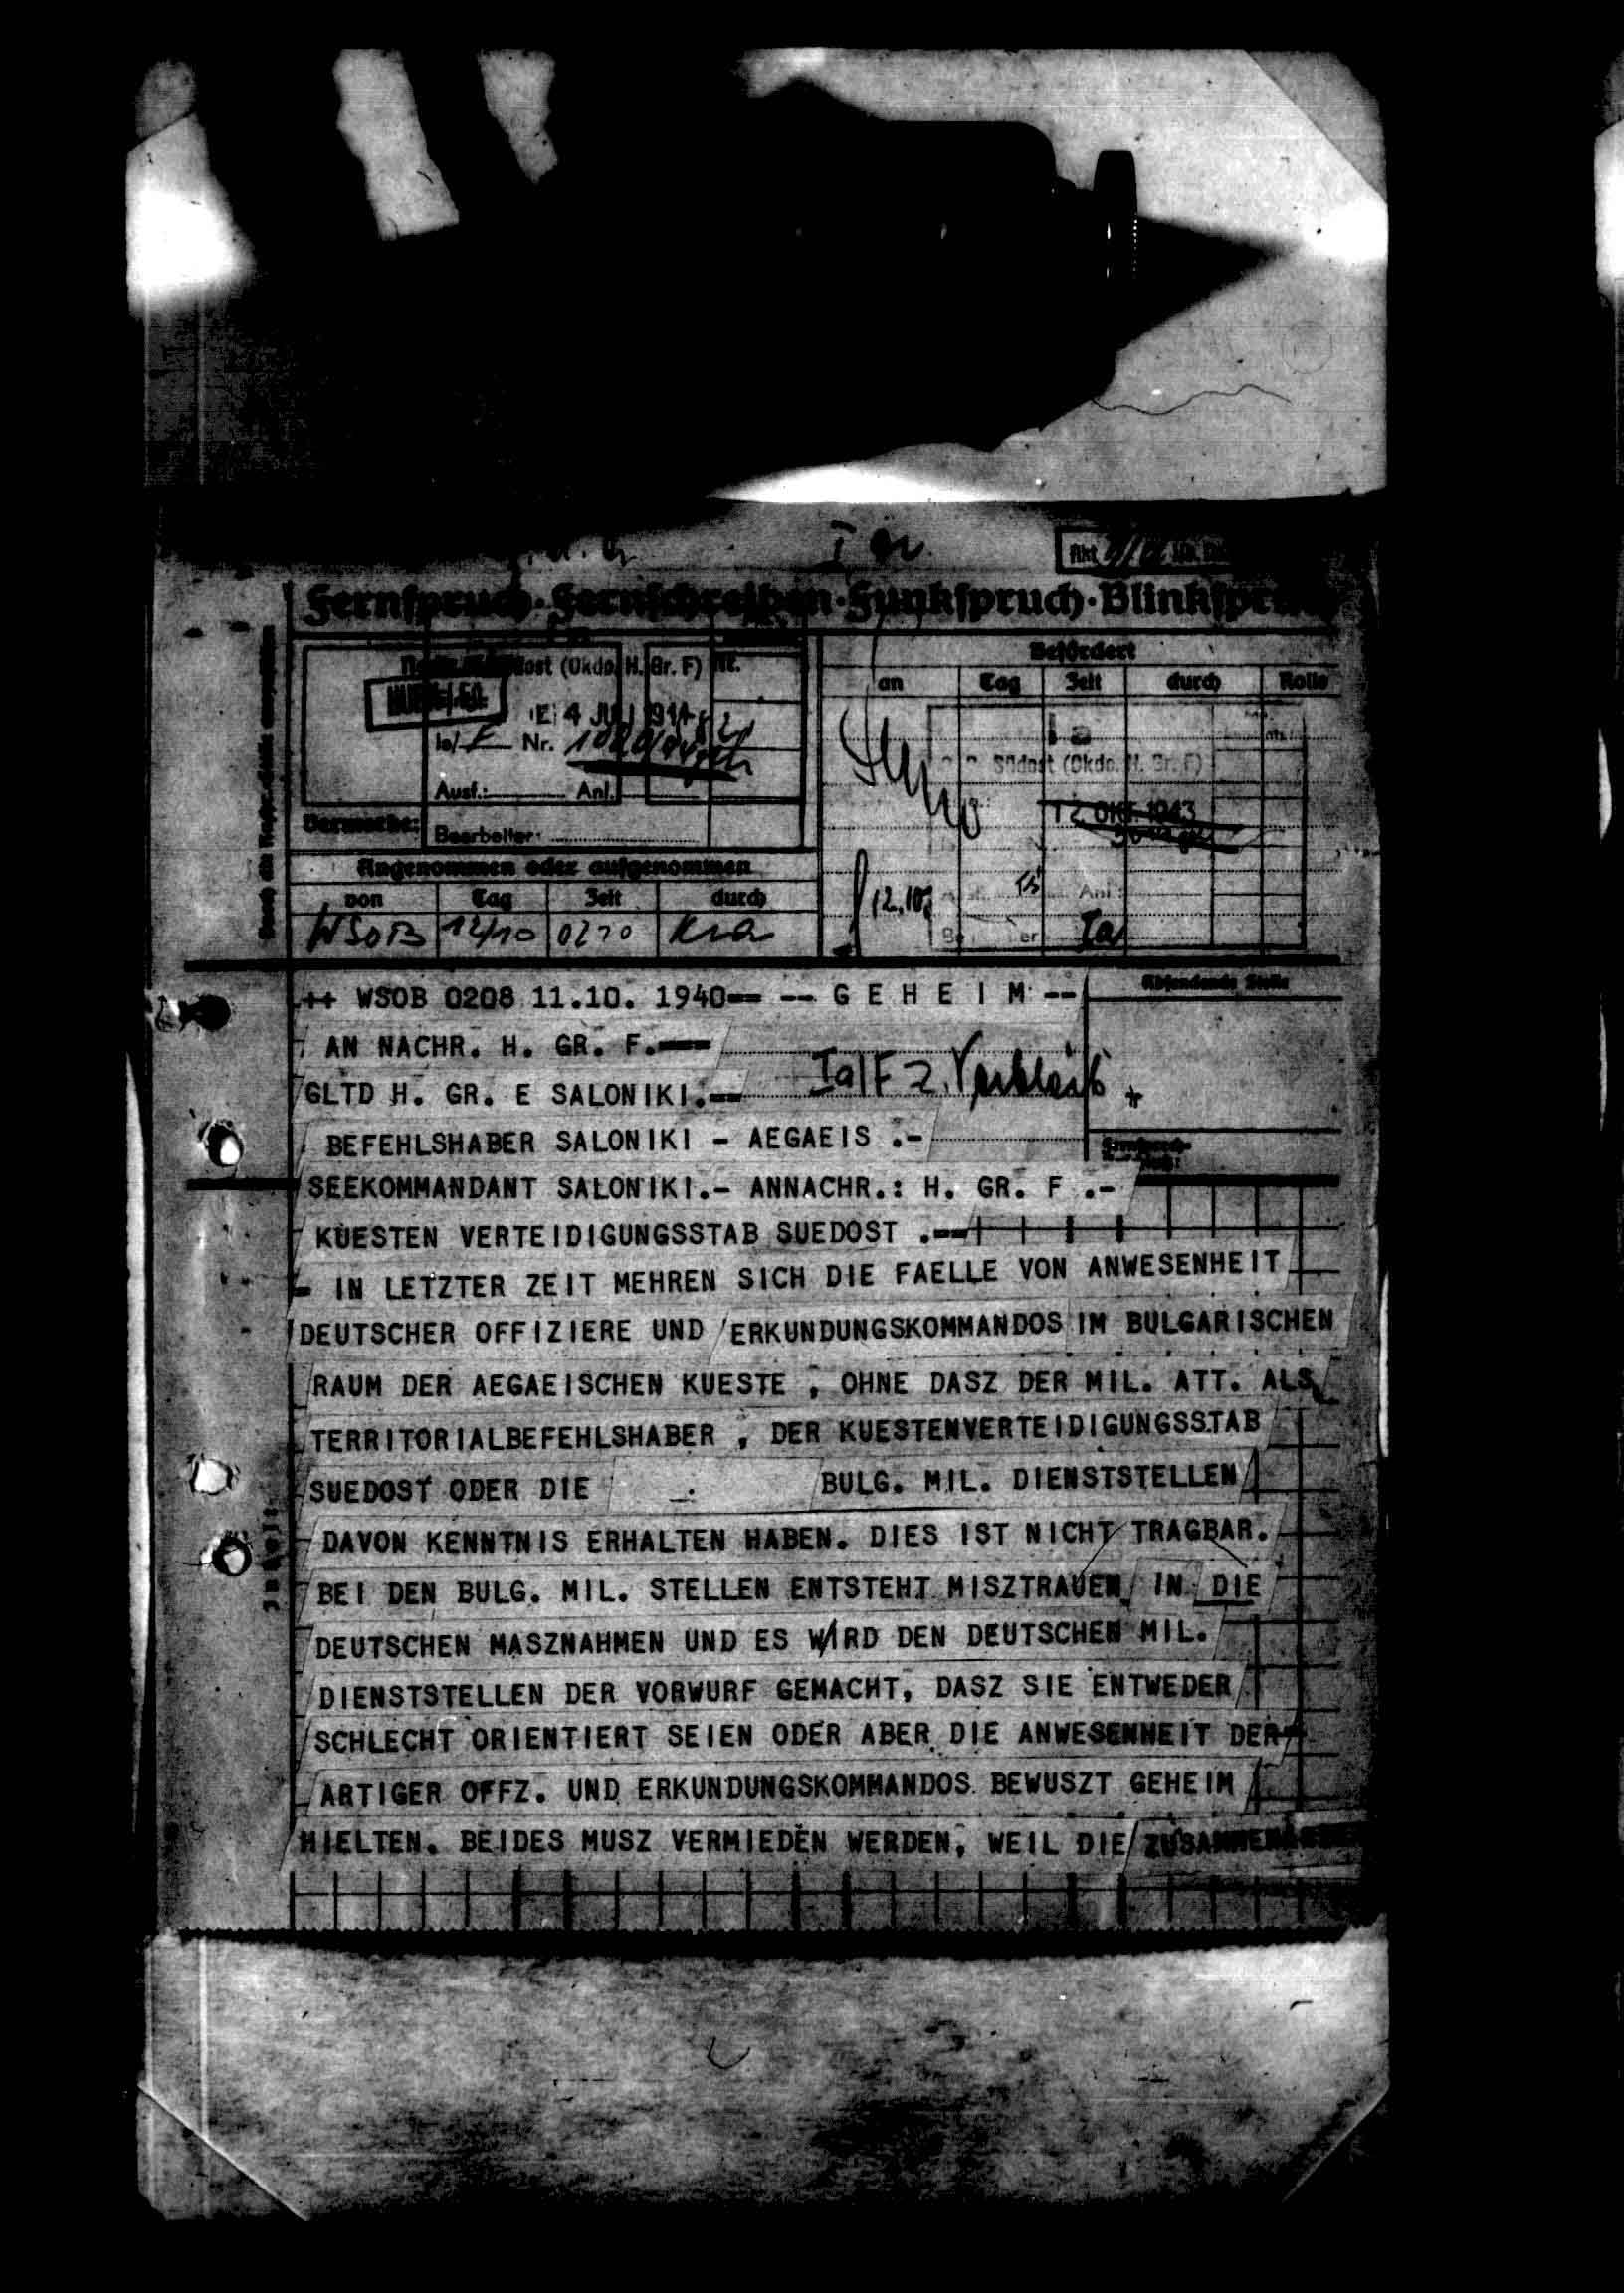 Fernspruch · Fernschreiben · Funkspruch · Blinkspruch
Südost (Okdo. H. Gr. F) Nr.
4 JULI 1944
Ia/F Nr.
Ausf.: Anl.
Vermerke: Bearbeiter:
Angenommen oder aufgenommen
von Tag Zeit durch
WSOB 12/10 Kra
Befördert
an Tag Zeit durch Rolle
Ia
Südost (Okdo. H. Gr. F)
12 OKT. 1943
12.10.
Anl.:
Ia
Absendende Stelle
++ WSOB 0208 11.10. 1940== -- G E H E I M --
AN NACHR. H. GR. F.---
GLTD H. GR. E SALONIKI.--
Ia/F z. Verbleib
BEFEHLSHABER SALONIKI - AEGAEIS .-
SEEKOMMANDANT SALONIKI.- ANNACHR.: H. GR. F .-
KUESTEN VERTEIDIGUNGSSTAB SUEDOST .--
- IN LETZTER ZEIT MEHREN SICH DIE FAELLE VON ANWESENHEIT
DEUTSCHER OFFIZIERE UND ERKUNDUNGSKOMMANDOS IM BULGARISCHEN
RAUM DER AEGAEISCHEN KUESTE , OHNE DASZ DER MIL. ATT. ALS
TERRITORIALBEFEHLSHABER , DER KUESTENVERTEIDIGUNGSSTAB
SUEDOST ODER DIE BULG. MIL. DIENSTSTELLEN
DAVON KENNTNIS ERHALTEN HABEN. DIES IST NICHT TRAGBAR.
BEI DEN BULG. MIL. STELLEN ENTSTEHT MISZTRAUEN IN DIE
DEUTSCHEN MASZNAHMEN UND ES WIRD DEN DEUTSCHEN MIL.
DIENSTSTELLEN DER VORWURF GEMACHT, DASZ SIE ENTWEDER
SCHLECHT ORIENTIERT SEIEN ODER ABER DIE ANWESENHEIT DER-
ARTIGER OFFZ. UND ERKUNDUNGSKOMMANDOS BEWUSZT GEHEIM
HIELTEN. BEIDES MUSZ VERMIEDEN WERDEN, WEIL DIE
Inhalt